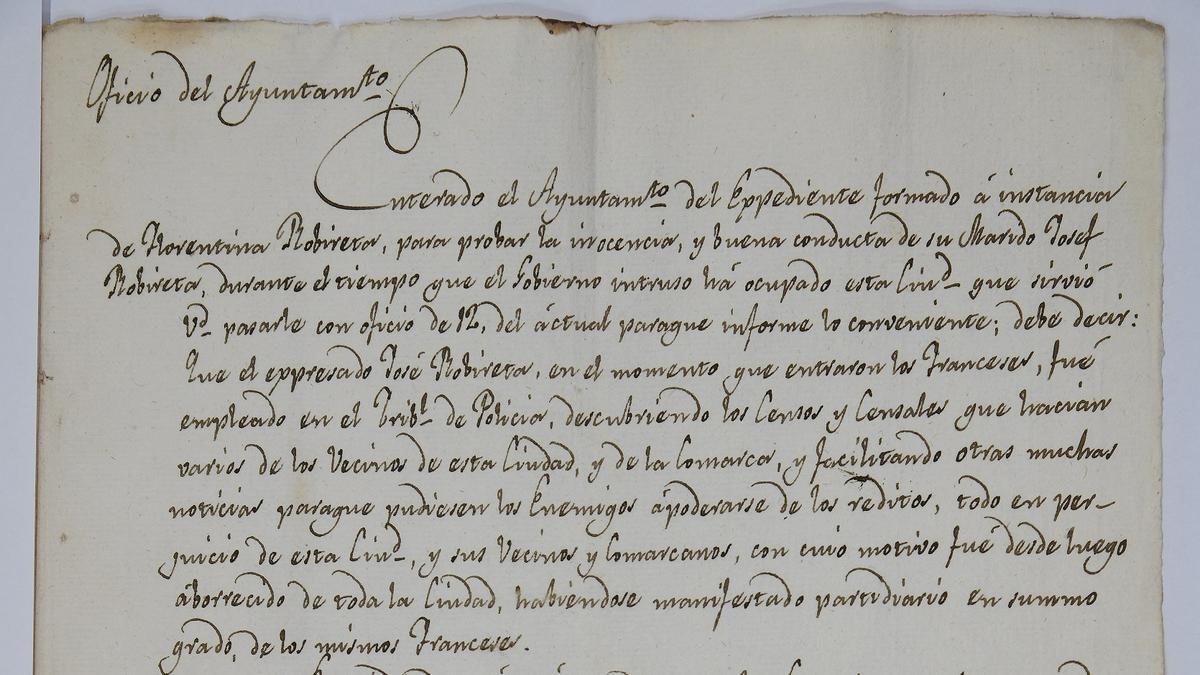 Oficio del Ayuntam.to
Enterado el Ayuntam.to del Expediente formado á instancia
de Florentina Robireta, para probar la inocencia, y buena conducta de su Marido Josef
Robireta, durante el tiempo que el Gobierno intruso há ocupado esta Ciud. que sirvió
Vd. pasarle con oficio de 12, del áctual paraque informe lo conveniente; debe decir:
Que el expresado José Robireta, en el momento que entraron los Franceses, fué
empleado en el Tribl. de Policia, descubriendo los Censos y Censales que hacian
varios de los Vecinos de esta Ciudad, y de la Comarca, y facilitando otras muchas
noticias paraque pudiesen los Enemigos ápoderarse de los réditos, todo en per-
juicio de esta Ciud., y sus Vecinos y Comarcanos, con cuio motivo fue desde luego
áborrecido de toda la Ciudad, habiéndose manifestado partidiario en summo
grado, de los mismos Franceses.